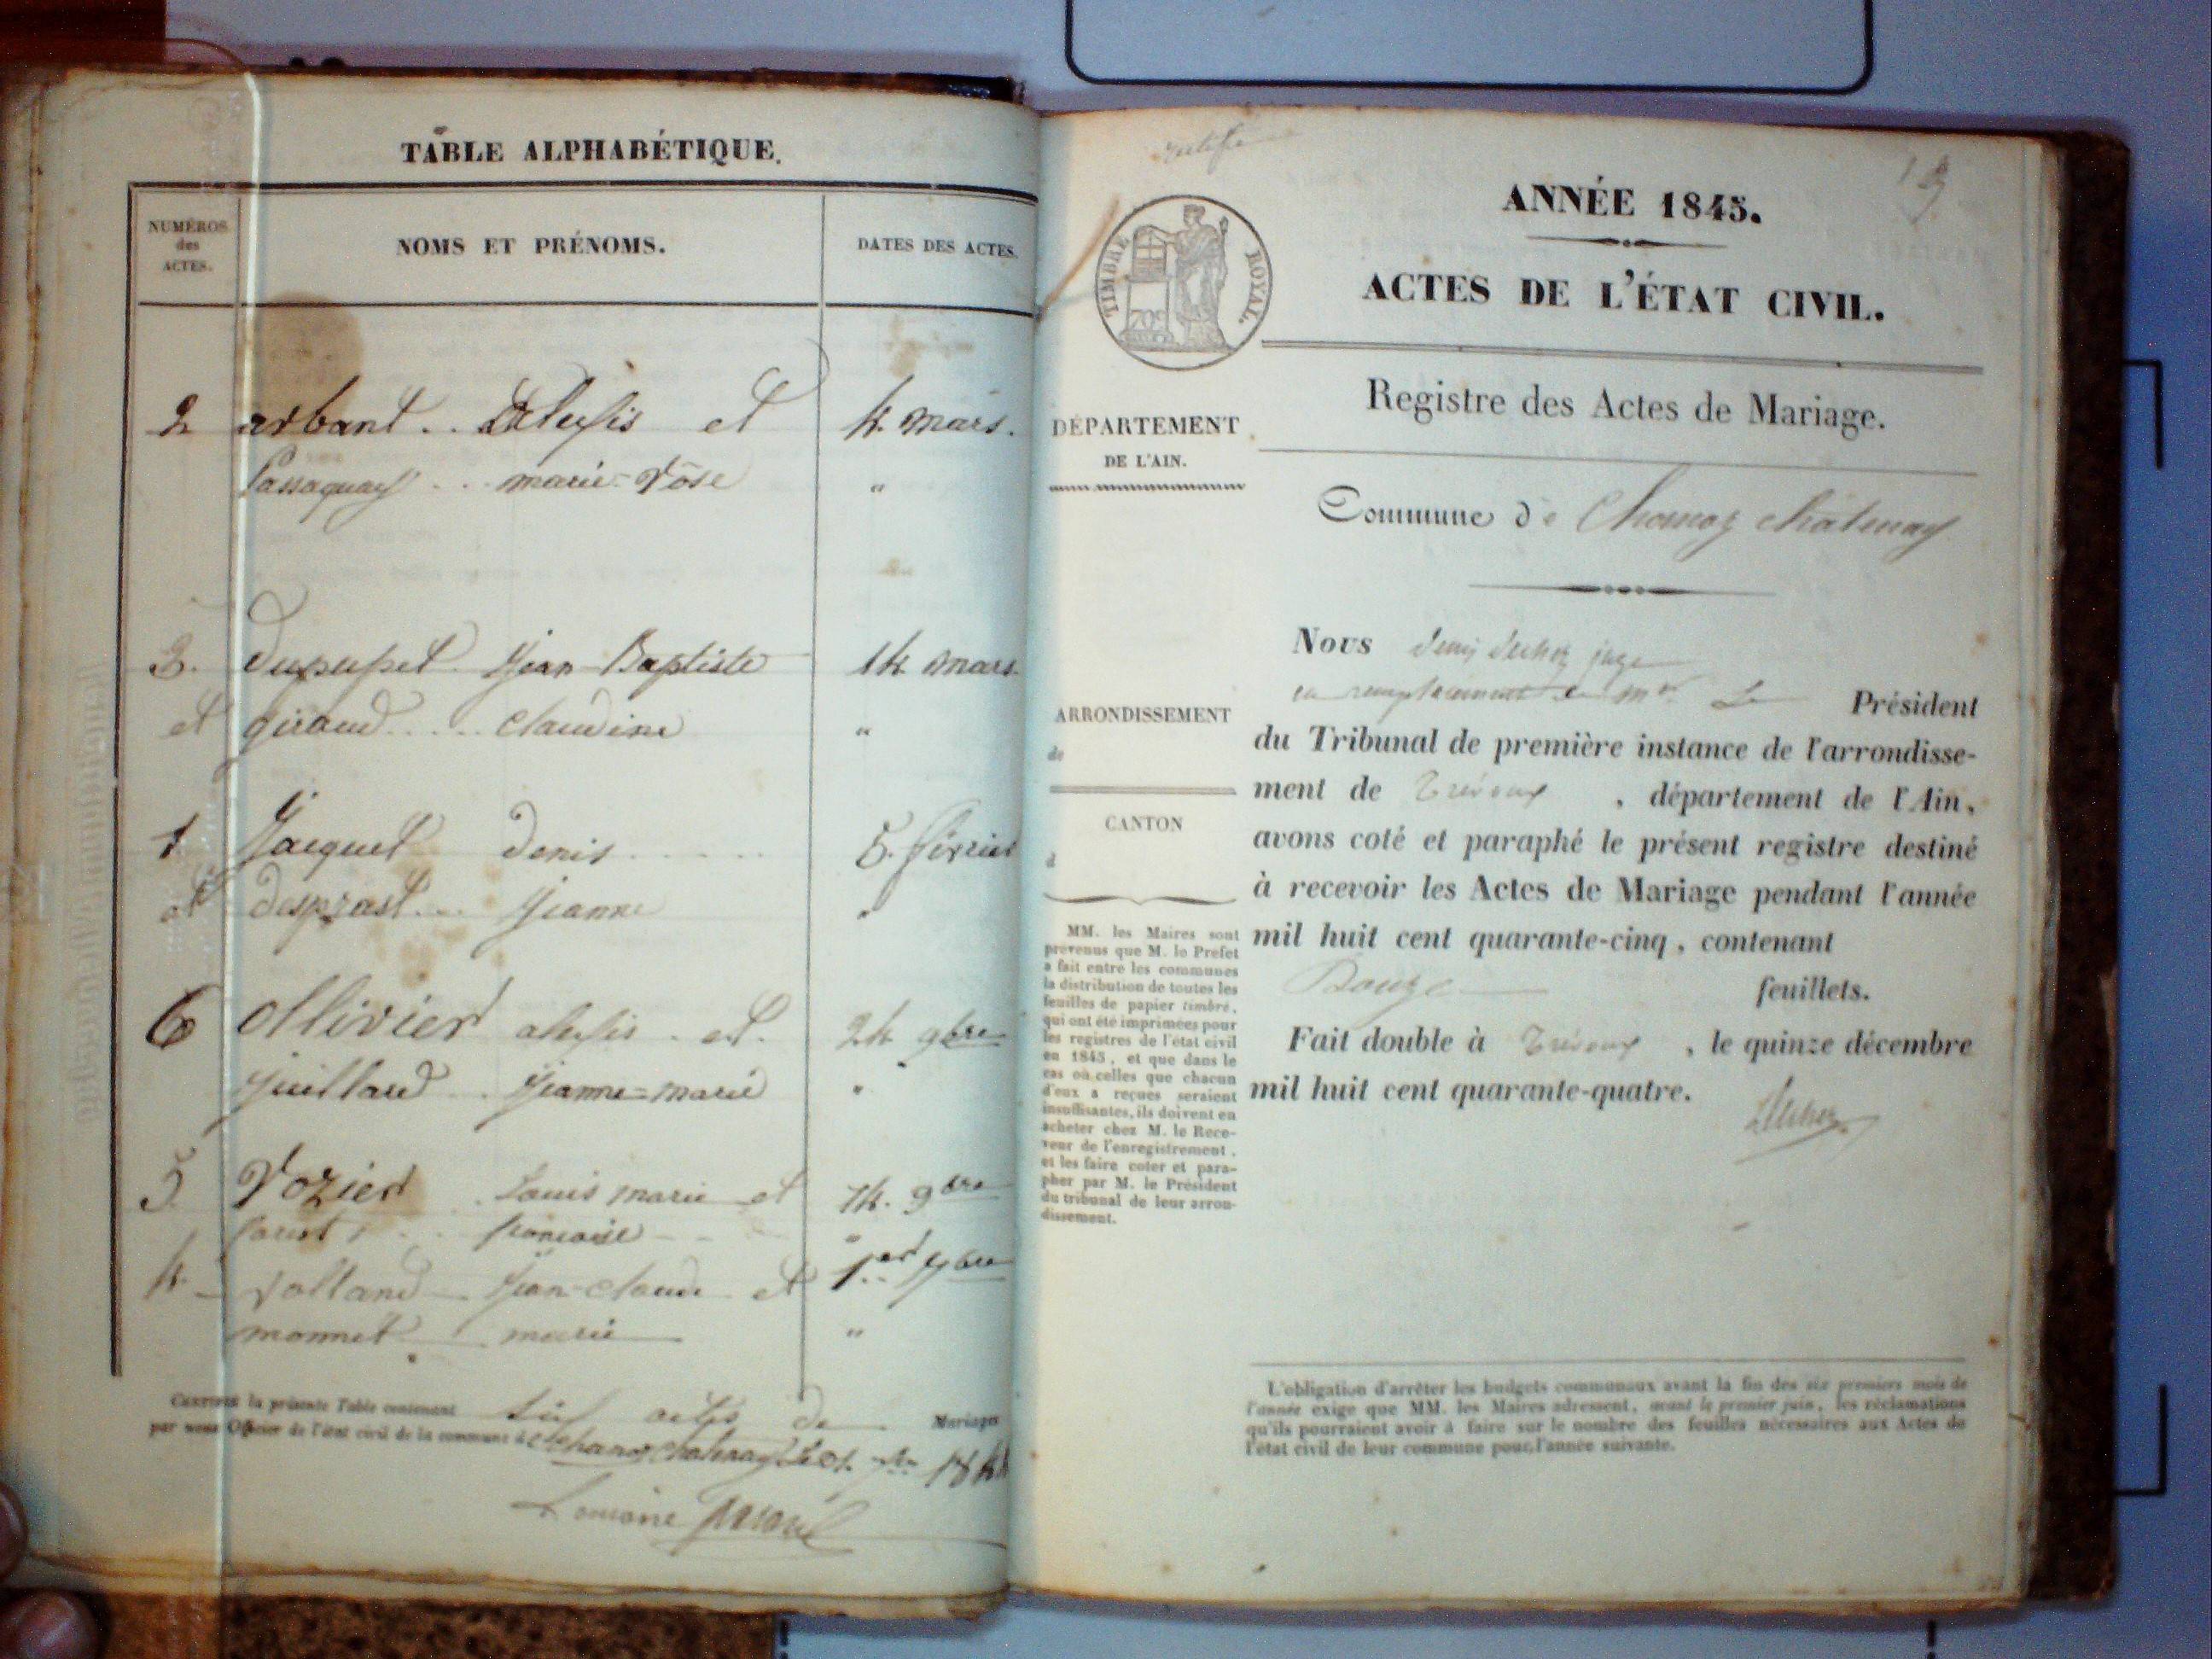 TABLE ALPHABÉTIQUE.
NUMÉROS
des
ACTES.
NOMS ET PRÉNOMS.
DATES DES ACTES.
2 arbant .. et 4 mars.
.. marie-Rose "
3. Jean-Baptiste 14 mars
et giraud .... claudine "
1 Jacquet denis ..... 5. février
et desprast ... Jeanne "
6 Ollivier alexis . et . 24 9bre
Juillard .. Jeanne=marie "
5. Rozier . Louis marie et 14. 9bre
françoise "
4. Volland Jean-claude et 1er 7bre
monnet marie "
CERTIFIÉ la présente Table contenant six actes de Mariages
par nous Officier de l'état civil de la commune de chanoz chatenay 1844
ANNÉE 1845.
ACTES DE L'ÉTAT CIVIL.
TIMBRE ROYAL.
70c
Registre des Actes de Mariage.
DÉPARTEMENT
DE L'AIN.
Commune de Chanoz châtenay
Nous juge
en remplacement de Mr. Le Président
ARRONDISSEMENT
de
du Tribunal de première instance de l'arrondisse-
ment de Trévoux , département de l'Ain,
CANTON
d
avons coté et paraphé le présent registre destiné
à recevoir les Actes de Mariage pendant l'année
mil huit cent quarante-cinq, contenant
Douze feuillets.
Fait double à Trévoux , le quinze décembre
mil huit cent quarante-quatre.
MM. les Maires sont
prévenus que M. le Préfet
a fait entre les communes
la distribution de toutes les
feuilles de papier timbré,
qui ont été imprimées pour
les registres de l'état civil
en 1845, et que dans le
cas où celles que chacun
d'eux a reçues seraient
insuffisantes, ils doivent en
acheter chez M. le Rece-
veur de l'enregistrement,
et les faire coter et para-
pher par M. le Président
du tribunal de leur arron-
dissement.
L'obligation d'arrêter les budgets communaux avant la fin des six premiers mois de
l'année exige que MM. les Maires adressent, avant le premier juin, les réclamations
qu'ils pourraient avoir à faire sur le nombre des feuilles nécessaires aux Actes de
l'état civil de leur commune pour l'année suivante.